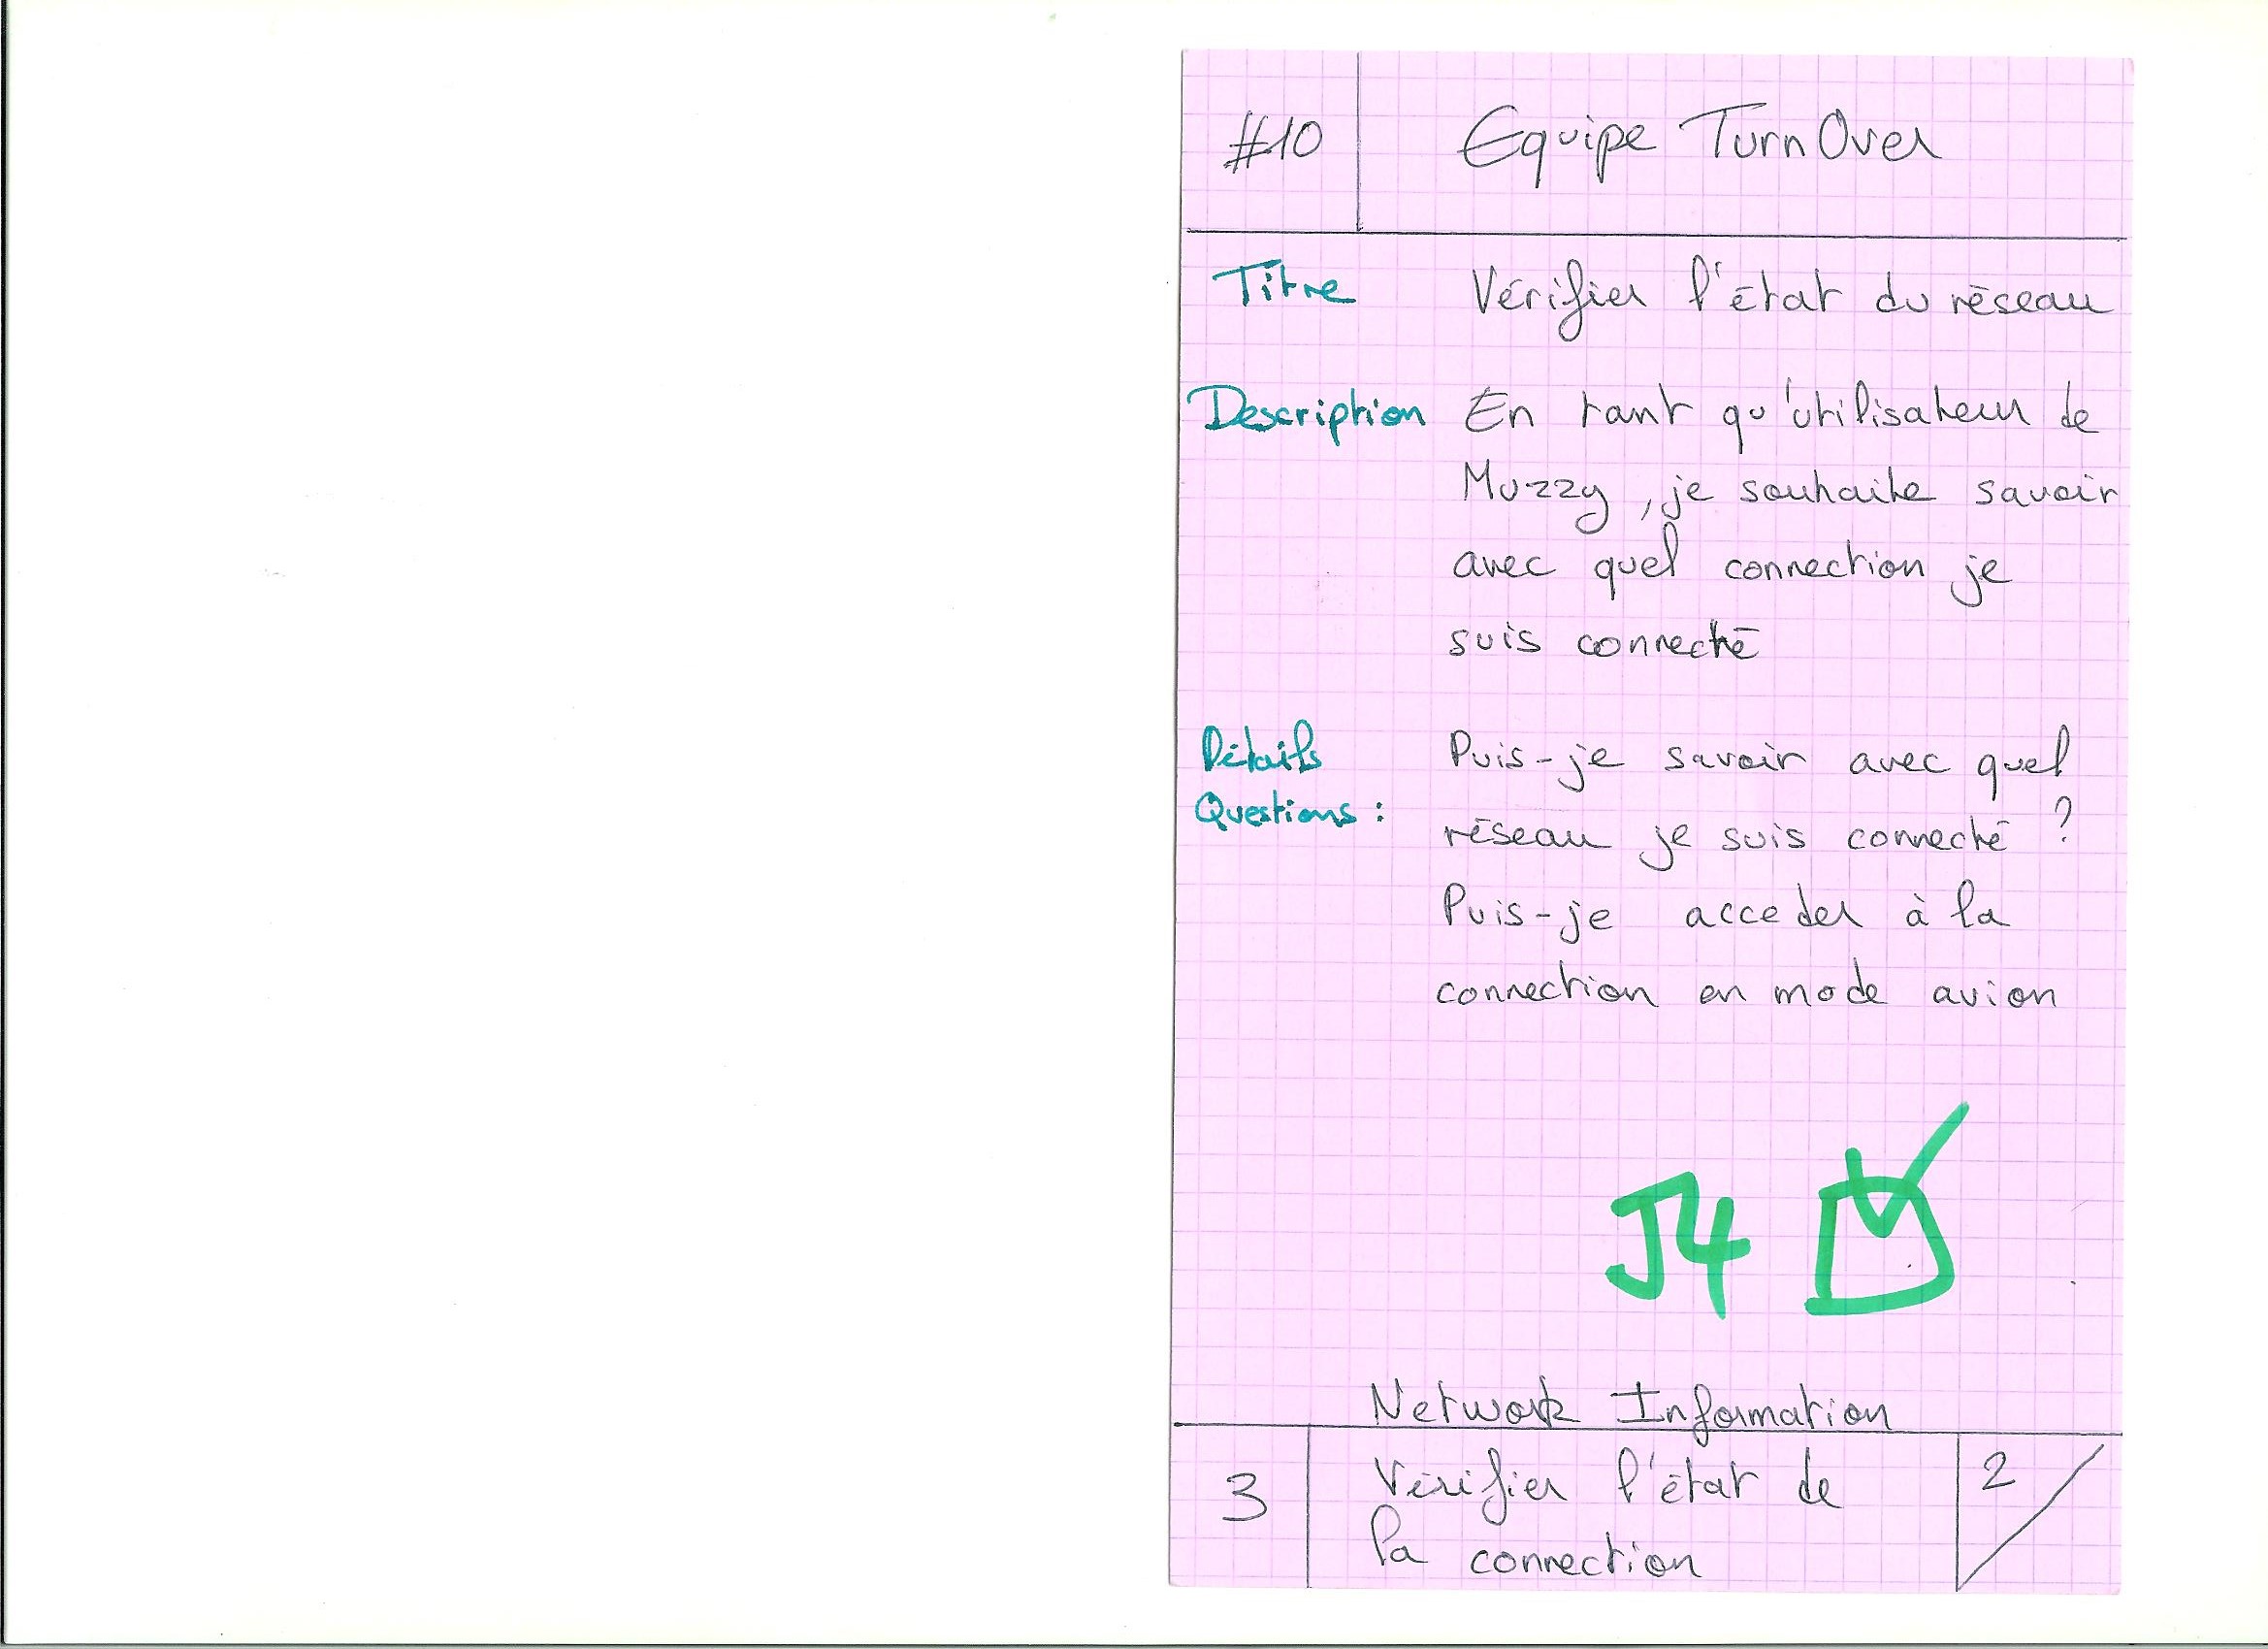 #10 Equipe TurnOver
Titre Vérifier l'état du réseau
Description En tant qu'utilisateur de
Muzzy, je souhaite savoir
avec quel connection je
suis connecté
Détails Puis-je savoir avec quel
Questions : réseau je suis connecté ?
Puis-je acceder à la
connection en mode avion
J4
Network Information
3 Vérifier l'état de 2
la connection